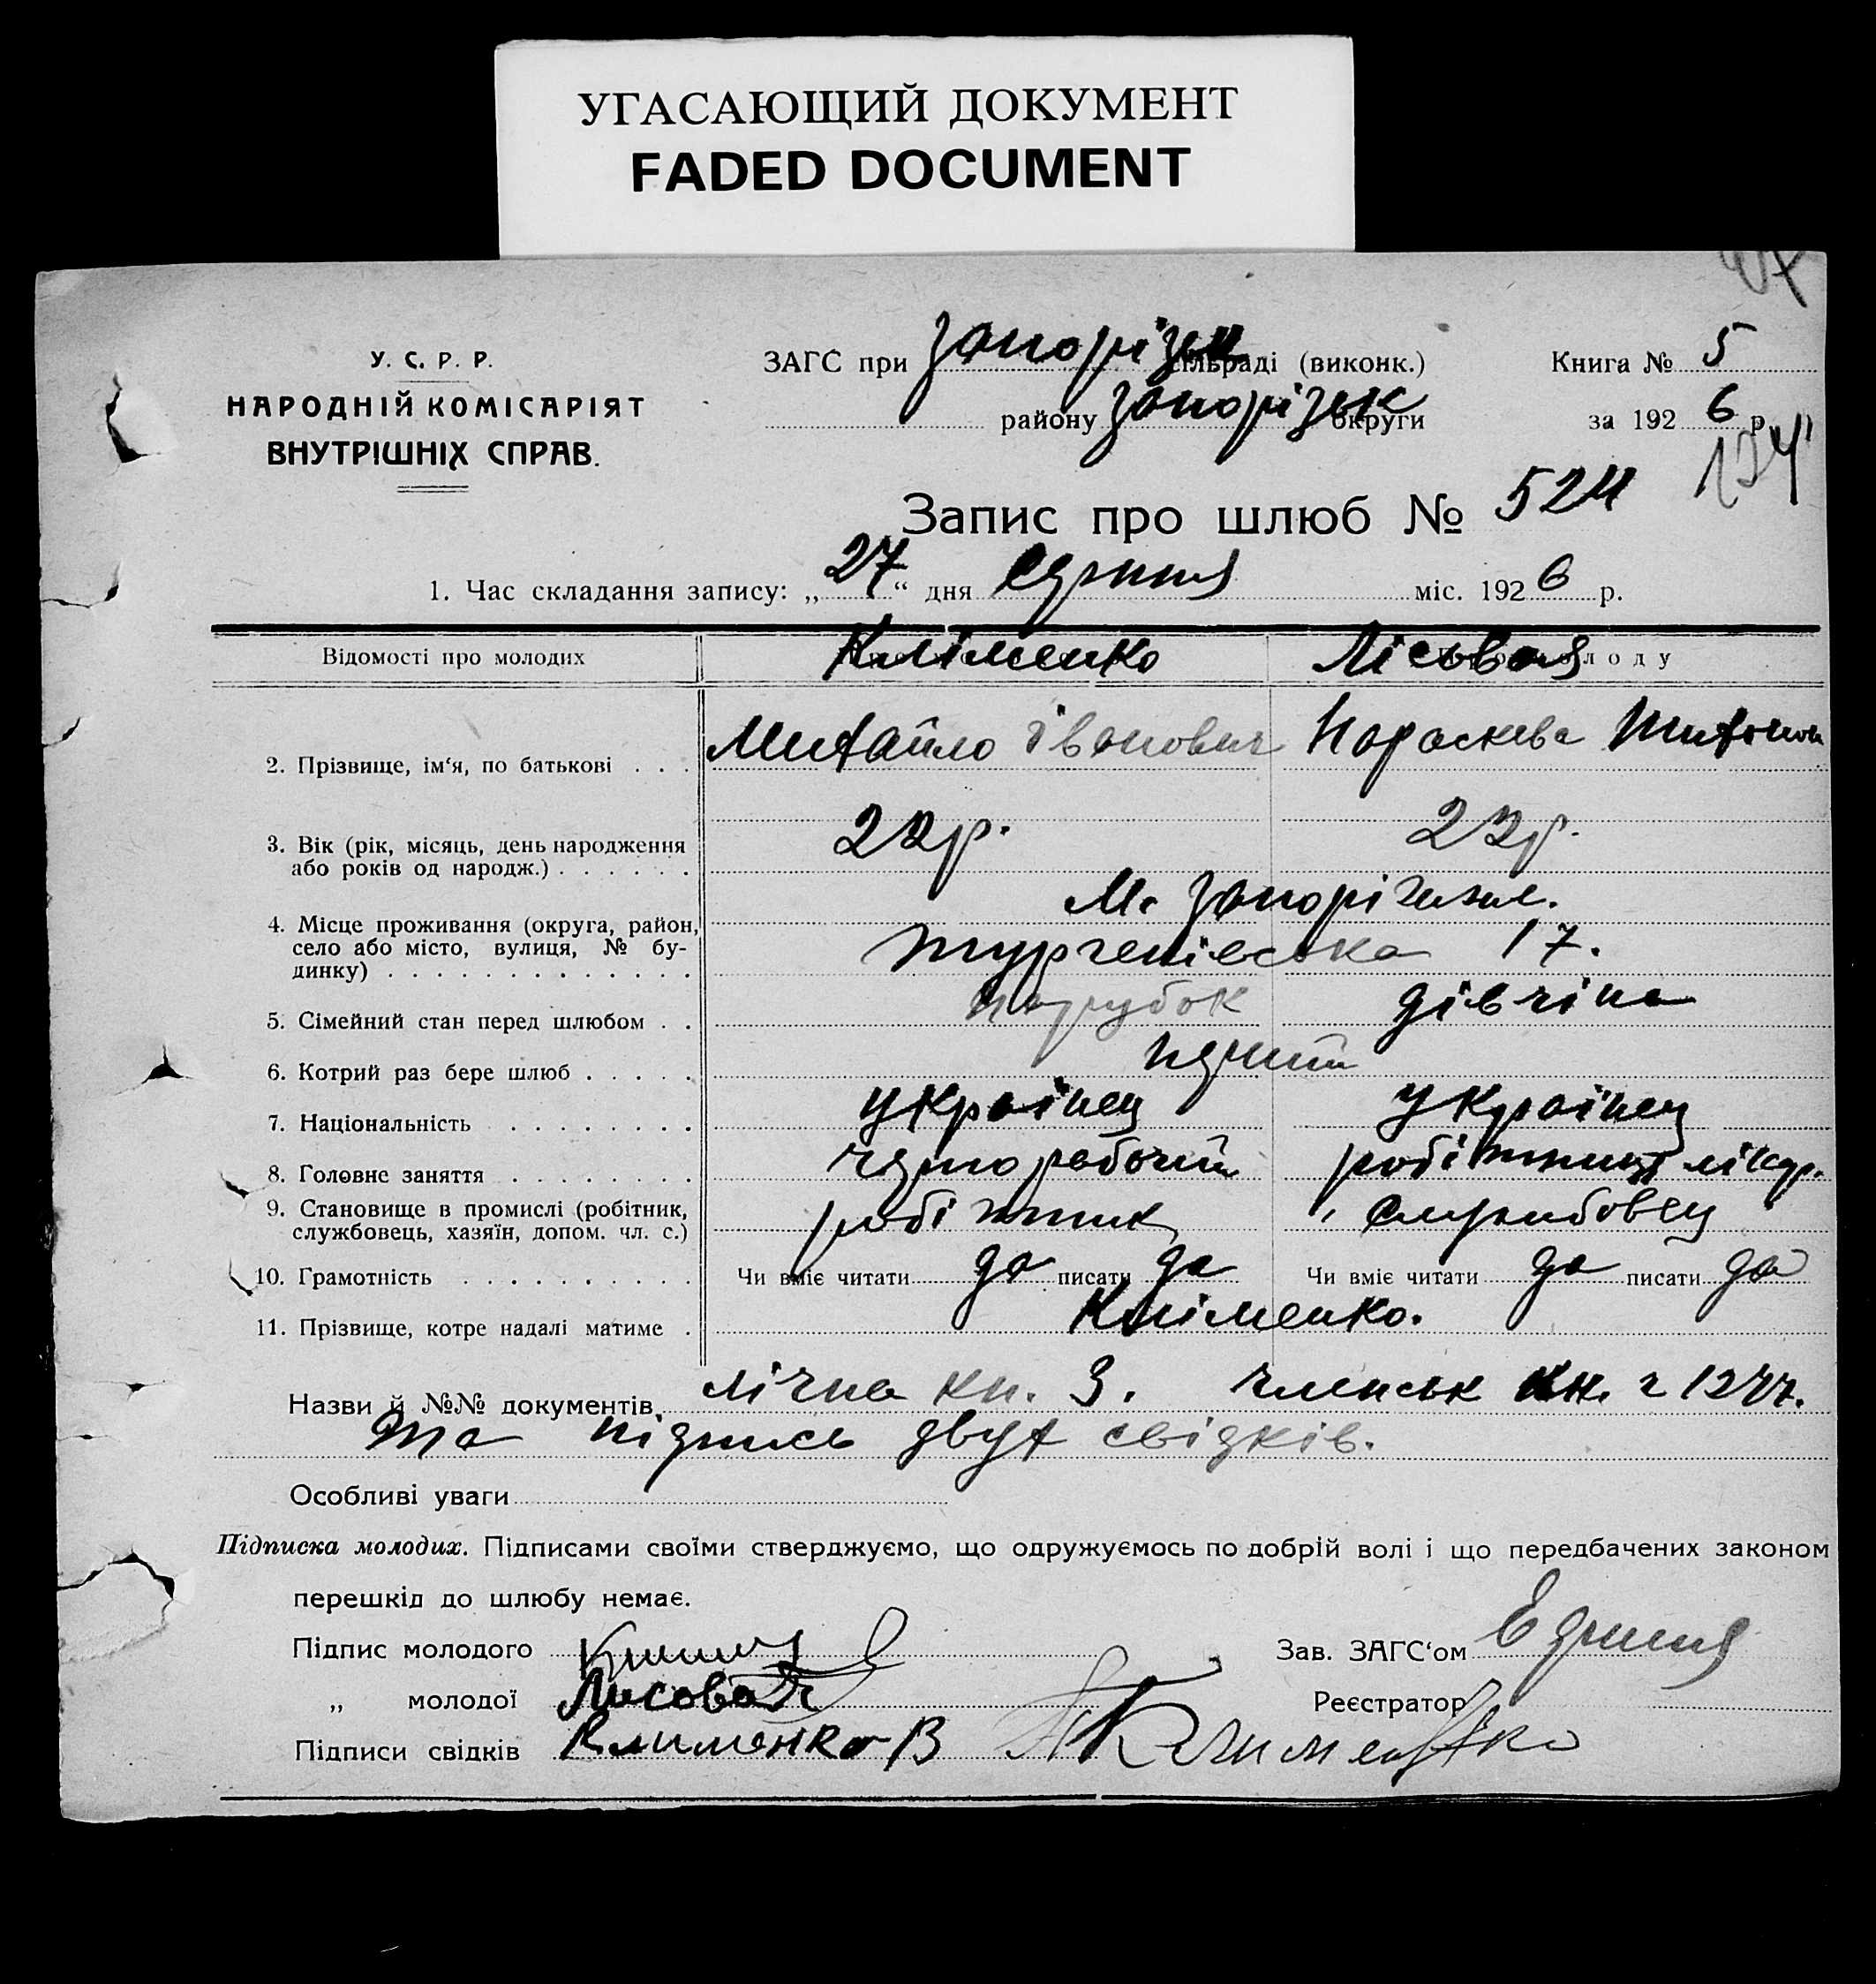 УГАСАЮЩИЙ ДОКУМЕНТ
FADED DOCUMENT
У. С. Р. Р.
НАРОДНІЙ КОМІСАРІЯТ
ВНУТРІШНІХ СПРАВ.
ЗАГС при Запорізьк сільраді (виконк.)
району Запорізьк округи
Книга № 5
за 192 6 р.
Запис про шлюб № 524
1. Час складання запису: „ 27 “ дня серпня міс. 192 6 р.
Відомості про молодих Кліменко Лісовая
2. Прізвище, ім‘я, по батькові . . . Михайло Іванович Параскева
3. Вік (рік, місяць, день народження
або років од народж.) . . . . . . 22 р. 22 р.
4. Місце проживання (округа, район,
село або місто, вулиця, № бу-
динку) . . . . . . . . . . . . . М. Запоріжжє.
Тургенієвська 17.
5. Сімейний стан перед шлюбом . . парубок дівчіна
6. Котрий раз бере шлюб . . . . . перший
7. Національність . . . . . . . . українец українец
8. Головне заняття . . . . . . . . чернорабочий робітниця лікар.
9. Становище в промислі (робітник,
службовець, хазяїн, допом. чл. с.) робітник службовец
10. Грамотність . . . . . . . . . . Чи вміє читати да писати да Чи вміє читати да писати да
11. Прізвище, котре надалі матиме . Кліменко.
Назви й №№ документів лічна кн. 3. членськ кн.
та підпись двух свідків.
Особливі уваги
Підписка молодих. Підписами своїми стверджуємо, що одружуємось по добрій волі і що передбачених законом
перешкід до шлюбу немає.
Підпис молодого
Зав. ЗАГС‘ом
„ молодої Лисовая
Реєстратор
Підписи свідків Клименко В Клименко